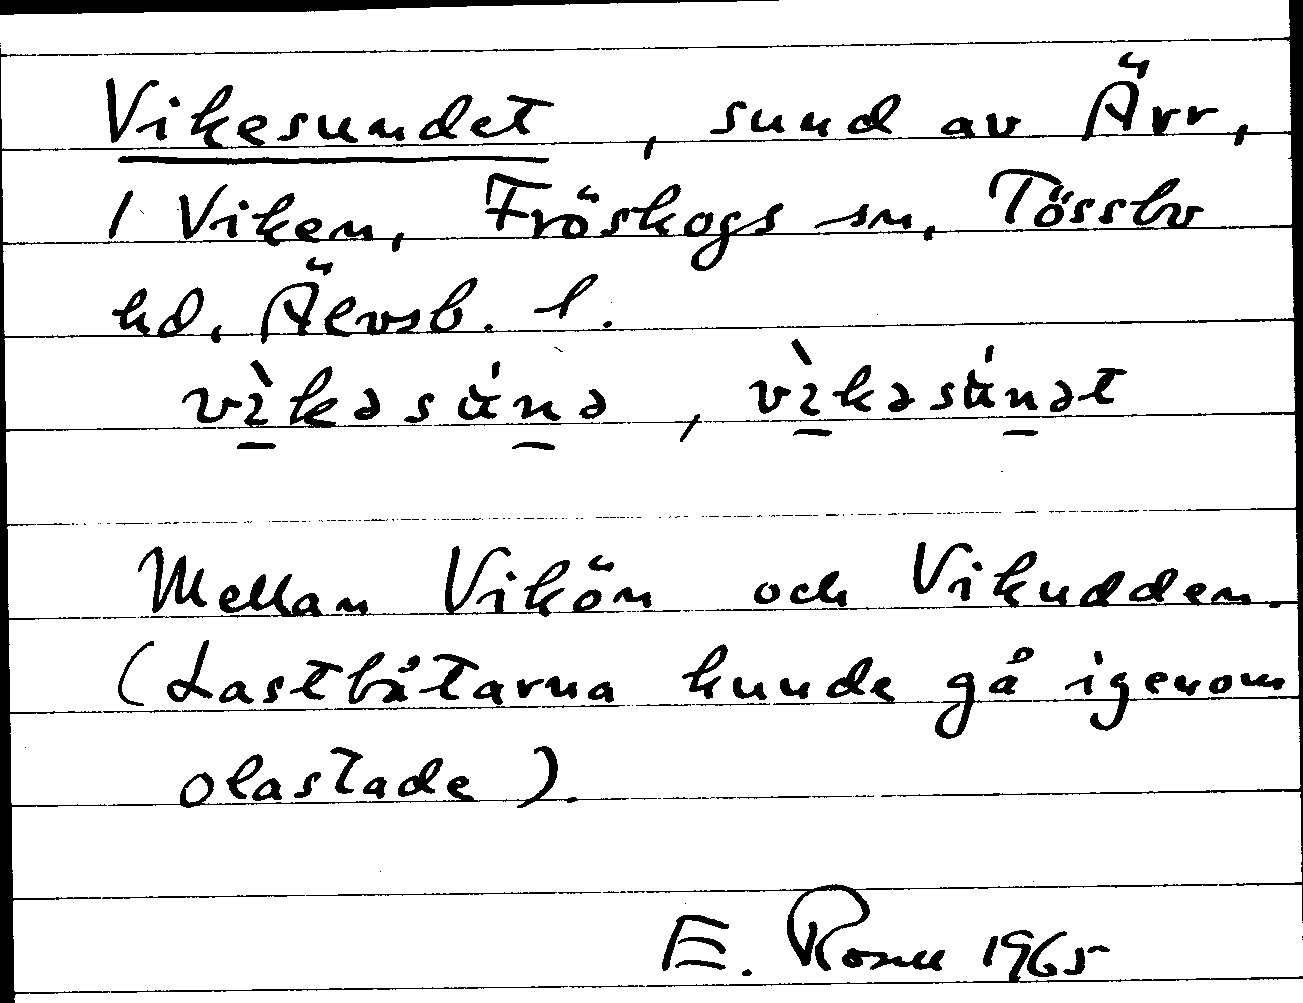 Vikesundet, sund av Ärr,
1 Viken, Fröskogs sn, Tössbo
hd, Älvsb. l.
vìkəsúnə, vìkəsúnət
Mellan Vikön och Vikudden.
(Lastbåtarna kunde gå igenom
olastade).
E. 1965